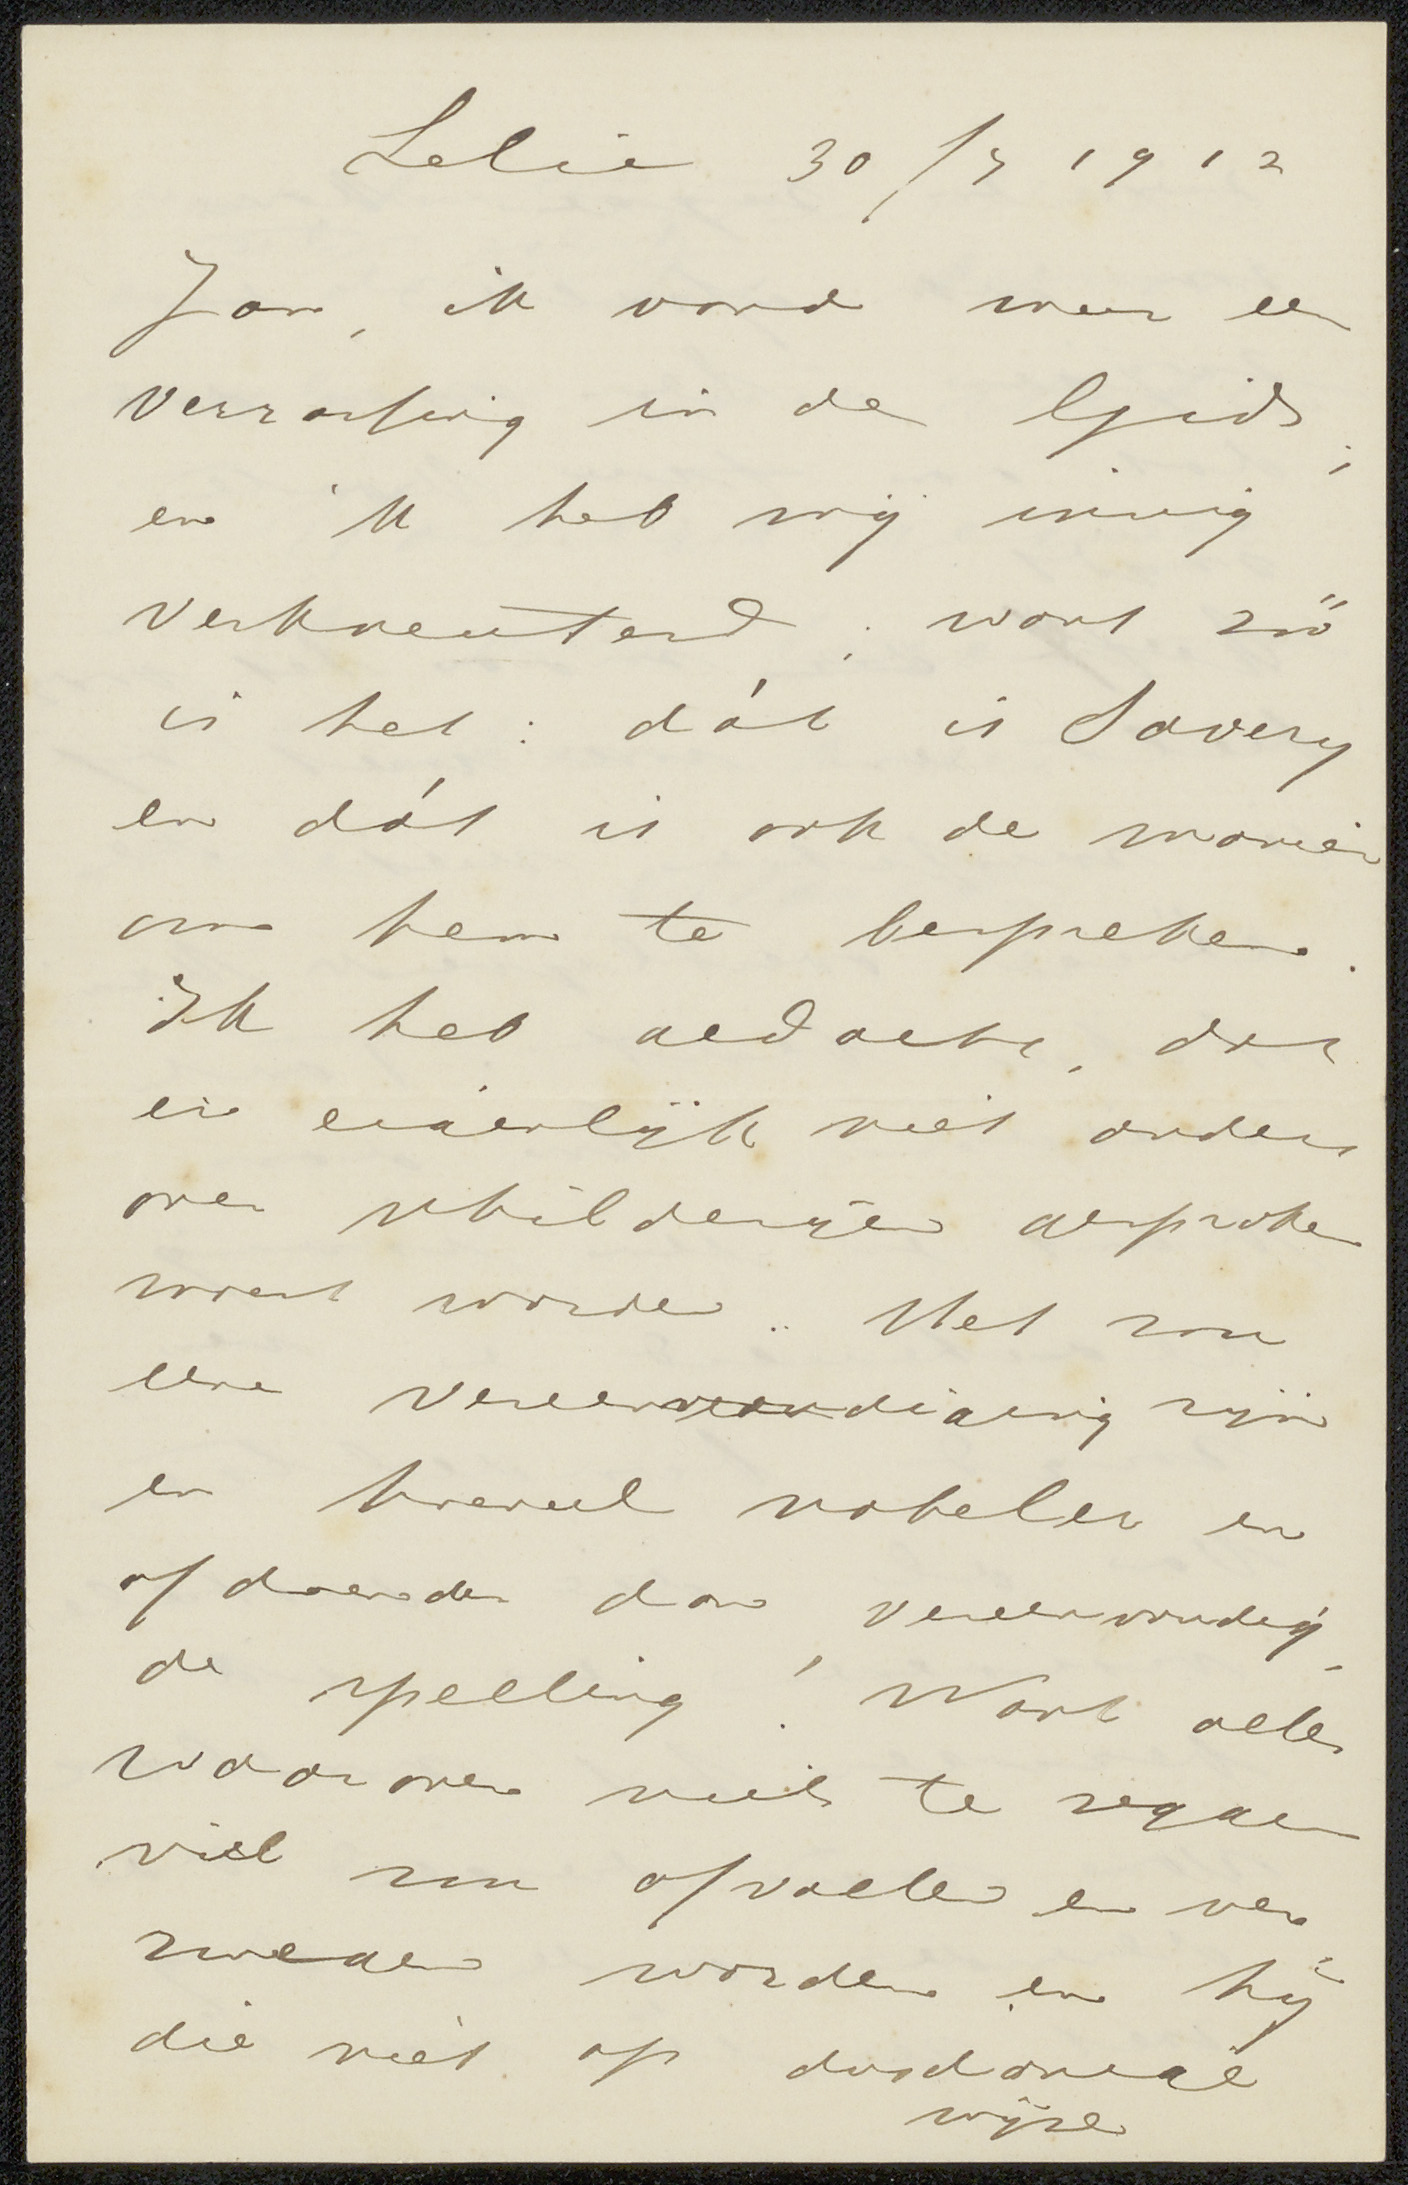 Lelie 30/7 1912
Jan, ik vond weer een
verrassing in de Gids;
en ik heb mij innig
verkneuterd; want zóó
is het: dát is Savery
en dát is ook de manier
om hem te bespreken.
Ik heb gedacht, dat
er eigenlijk niet anders
over schilderijen gesproken
moest worden. Het zou
eene vereenvoudiging zijn
en hoeveel nobeler en
afdoender dan vereenvoudig-
de spelling! Want alles
waarover niets te zeggen
viel zou afvallen en ver
zwegen worden en hij
die niet op dusdanige
wijze